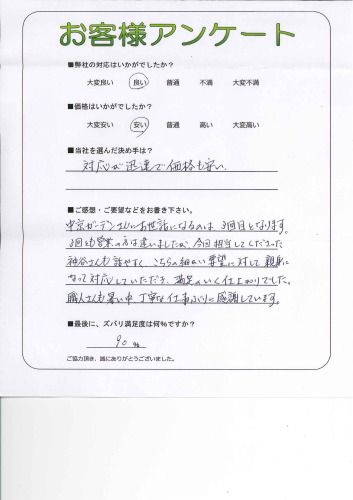 お客様アンケート
■弊社の対応はいかがでしたか？
大変良い 良い 普通 不満 大変不満
■価格はいかがでしたか？
大変安い 安い 普通 高い 大変高い
■当社を選んだ決め手は？
対応が迅速で価格も安い。
■ご感想・ご要望などをお書き下さい。
中京ガーデンさんにお世話になるのは、3回目となります。
3回とも営業の方は違いましたが、今回担当してくださった
神谷さんも話やすく、こちらの細かい要望に対して親身に
なって対応していただき、満足のいく仕上がりでした。
職人さんも暑い中、丁寧な仕事ぶりに感謝しています。
■最後に、ズバリ満足度は何%ですか？
90 %
ご協力頂き、誠にありがとうございました。